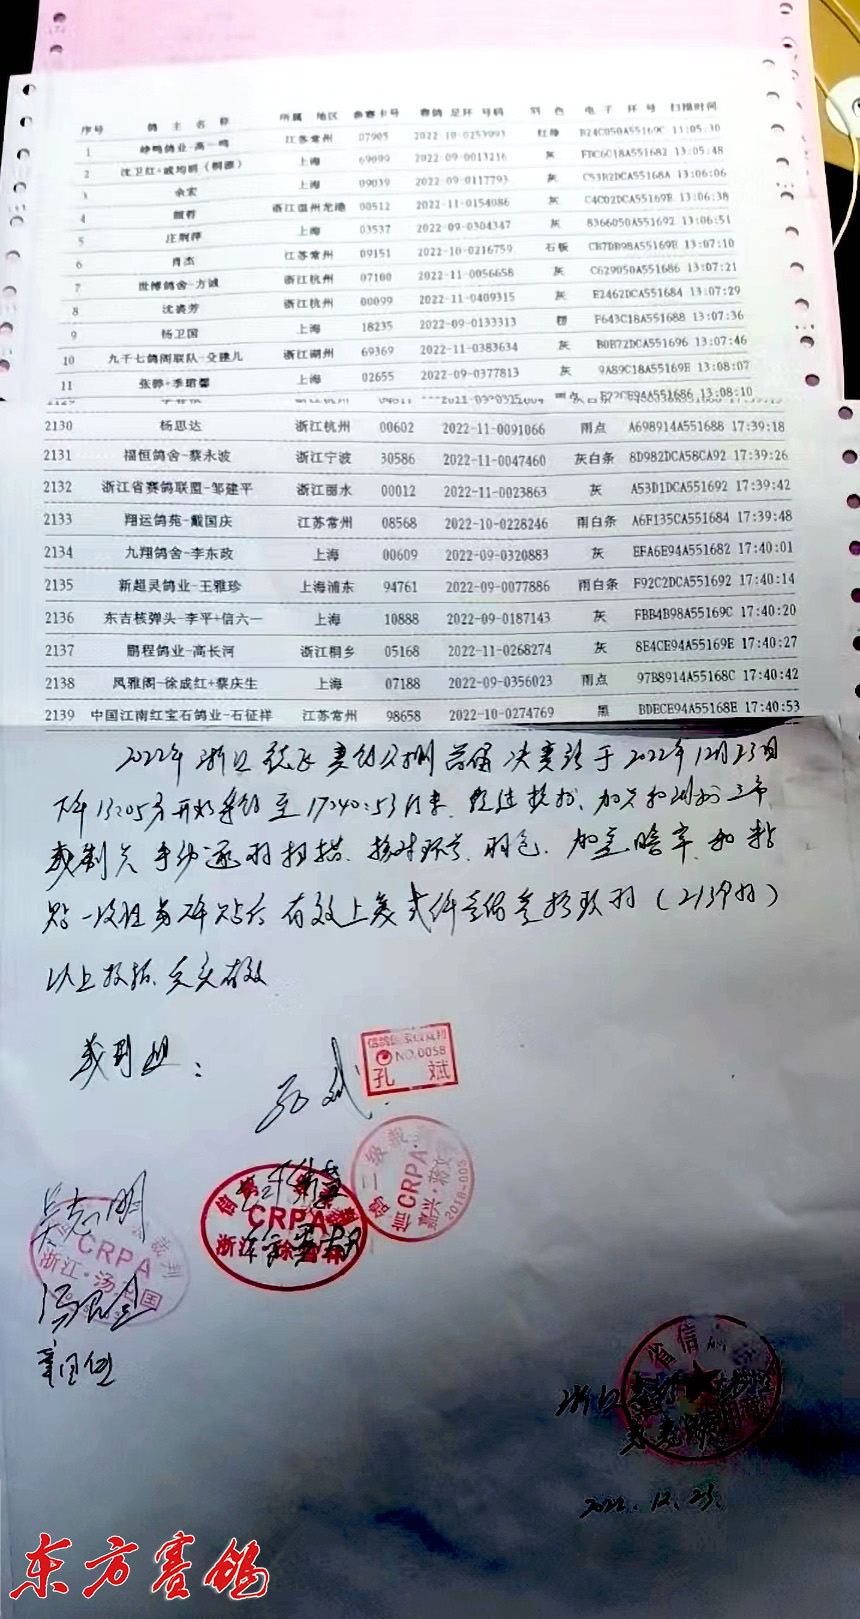 序号 鸽主名称 所属地区 参赛卡号 赛鸽足环号码 羽色 电子环号 扫描时间
1 峥鸣鸽业-高一鸣 江苏常州 07905 2022-10-0253993 红绛 B24C050A55169C 13:05:30
2 沈卫红+戚均明(桐源) 上海 69099 2022-09-0013216 灰 FDC6C18A551682 13:05:48
3 余宏 上海 09039 2022-09-0117793 灰 C53B2DCA55168A 13:06:06
4 浙江温州龙港 00512 2022-11-0154086 灰 C4C02DCA55169E 13:06:38
5 庄荆萍 上海 03537 2022-09-0304347 灰 8366050A551692 13:06:51
6 肖杰 江苏常州 09151 2022-10-0216759 石板 CB7DB98A55169B 13:07:10
7 世博鸽舍-方诚 浙江杭州 07100 2022-11-0056658 灰 C629050A551686 13:07:21
8 沈凑芳 浙江杭州 00099 2022-11-0409315 灰 E2462DCA551684 13:07:29
9 杨卫国 上海 18235 2022-09-0133313 楞 F643C18A551688 13:07:36
10 九千七鸽阁联队-交建儿 浙江湖州 69369 2022-11-0383634 灰 B0B72DCA551696 13:07:46
11 张骅+季珺馨 上海 02655 2022-09-0377813 灰 9A89C18A55169E 13:08:07
13:08:10
2130 杨思达 浙江杭州 00602 2022-11-0091066 雨点 A698914A551688 17:39:18
2131 福恒鸽舍-蔡永波 浙江宁波 30586 2022-11-0047460 灰白条 8D982DCA58CA92 17:39:26
2132 浙江省赛鸽联盟-邹建平 浙江丽水 00012 2022-11-0023863 灰 A53D1DCA551692 17:39:42
2133 翔运鸽苑-戴国庆 江苏常州 08568 2022-10-0228246 雨白条 A6F135CA551684 17:39:48
2134 九翔鸽舍-李东政 上海 00609 2022-09-0320883 灰 EFA6E94A551682 17:40:01
2135 新超灵鸽业-王雅珍 上海浦东 94761 2022-09-0077886 雨白条 F92C2DCA551692 17:40:14
2136 东吉核弹头-李平+信六一 上海 10888 2022-09-0187143 灰 FBB4B98A55169C 17:40:20
2137 鹏程鸽业-高长河 浙江桐乡 05168 2022-11-0268274 灰 8E4CE94A55169E 17:40:27
2138 凤雅阁-徐成红+蔡庆生 上海 07188 2022-09-0356023 雨点 97B8914A55168C 17:40:42
2139 中国江南红宝石鸽业-石征祥 江苏常州 98658 2022-10-0274769 黑 BDECE94A55168E 17:40:53
2022年浙江 赛鸽公棚 决赛 于2022年12月23日
下午13:05分开始 至17:40:53
裁判员手抄逐羽扫描、核对环号、羽色、加盖暗章、和粘
贴一次性 有效上笼贰仟壹佰叁拾玖羽(2139羽)
以上数据、真实有效
裁判组:
NO.0058
孔斌
二级裁
信CRPA
嘉兴·蒋文
2018-005
CRPA
浙江
吴志明
CRPA
裁判
浙江·汤卫国
省信
浙江
2022.12.23.
东方赛鸽